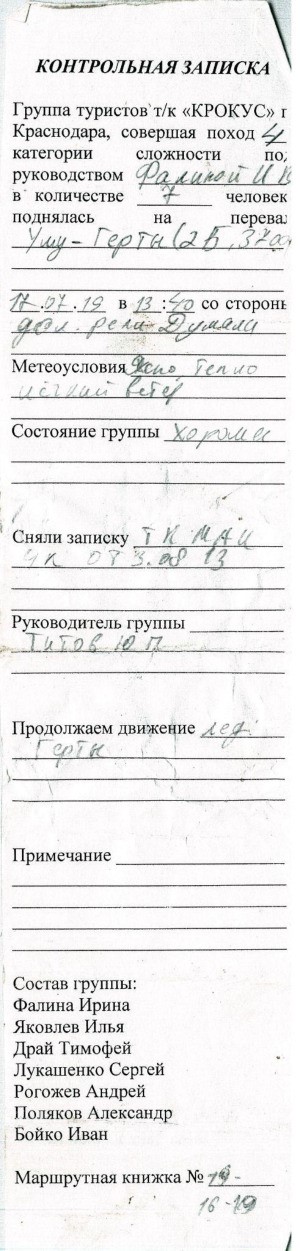 КОНТРОЛЬНАЯ ЗАПИСКА
Группа туристов т/к «КРОКУС» г
Краснодара, совершая поход 4
категории сложности под
руководством Фалиной И В
в количестве 7 человек
поднялась на перевал
Уллу-Герты (2Б, 3700
17.07.19 в 13:40 со стороны
дол. реки Думала
Метеоусловия Ясно тепло
лёгкий ветер
Состояние группы хорошее
Сняли записку ТК МАИ
ук от 3.08 13
Руководитель группы
Титов Ю П
Продолжаем движение лед.
Герты
Примечание
Состав группы:
Фалина Ирина
Яковлев Илья
Драй Тимофей
Лукашенко Сергей
Рогожев Андрей
Поляков Александр
Бойко Иван
Маршрутная книжка № 19-
16-19